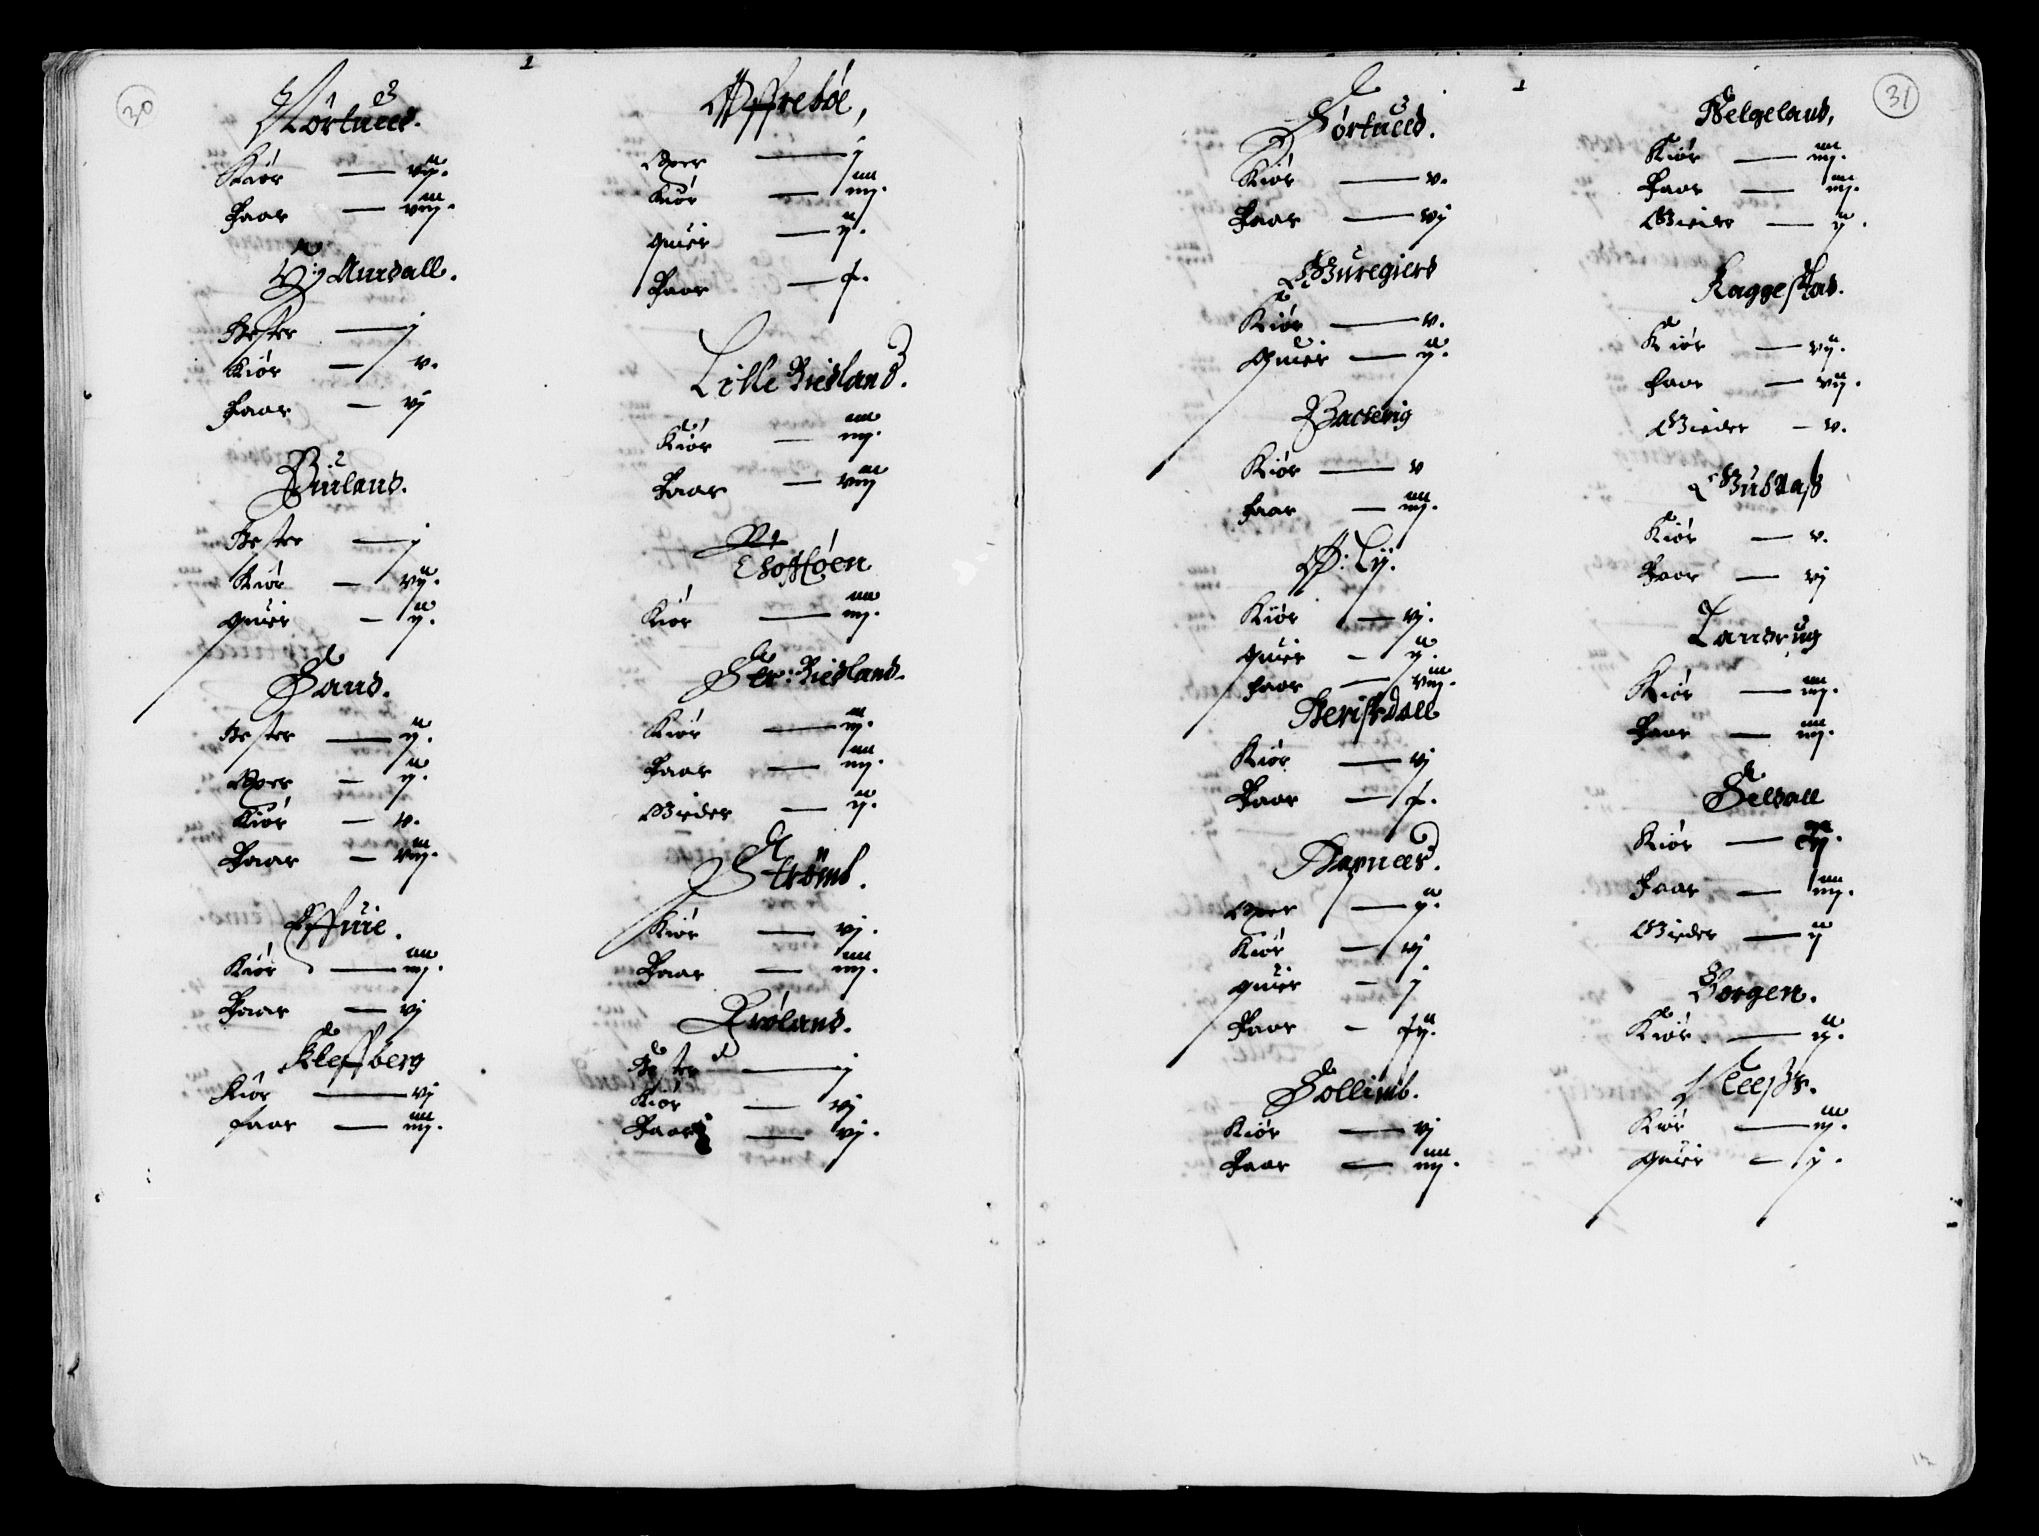 30
Nörtueed.
Kiör — vij.
Faar — viij.
Y: Aurdall.
Hester — j
Kiör — v.
Faar — vj
Biuland.
Hester — j
Kiör — vij.
Quier — ij.
Sand.
Hester — ij.
Oxer — ij.
Kiör — v.
Faar — viij.
Kiör — iiij.
Faar — vj
Kleffberg
Kiör — vj
faar — iiij.
Offreböe,
Oxer — j
Kiör — iiij.
Quier — ij.
Faar — x.
Lille Birdland.
Kiör — iiij.
Faar — viij
Kiör — iiij.
Str: Birdland.
Kiör — iij.
Faar — iiij.
Gieder — ij.
Strömb.
Kiör — vj.
Faar — iiij.
Röland.
Hester — j
Kiör — vj
Faar — vj.
31
Sörtueed.
Kiör — v.
Faar — vj
Guregierd
Kiör — v.
Quier — ij.
Backevig
Kiör — v
faar — iiij.
Ø: Lij.
Kiör — vj.
Quier — ij.
faar — viij.
Heriskdall
Kiör — vj
Faar — x.
Hapnees.
Oxer — ij.
Kiör — vj
Quier — j
Faar — xij.
Sollimb.
Kiör — vj
Faar — iiij.
Helgeland,
Kiör — iiij.
Faar — iiij.
Gieder — ij.
Raggestad.
Kiör — vij.
faar — vij.
Gieder — v.
Kiör — v.
Faar — vj
Landrug
Kiör — iiij.
Faar — iiij.
Seldall
Kiör —
Faar — iiij.
Gieder — ij
Borgen.
Kiör — ij.
Kiör — iij.
Quier — j.